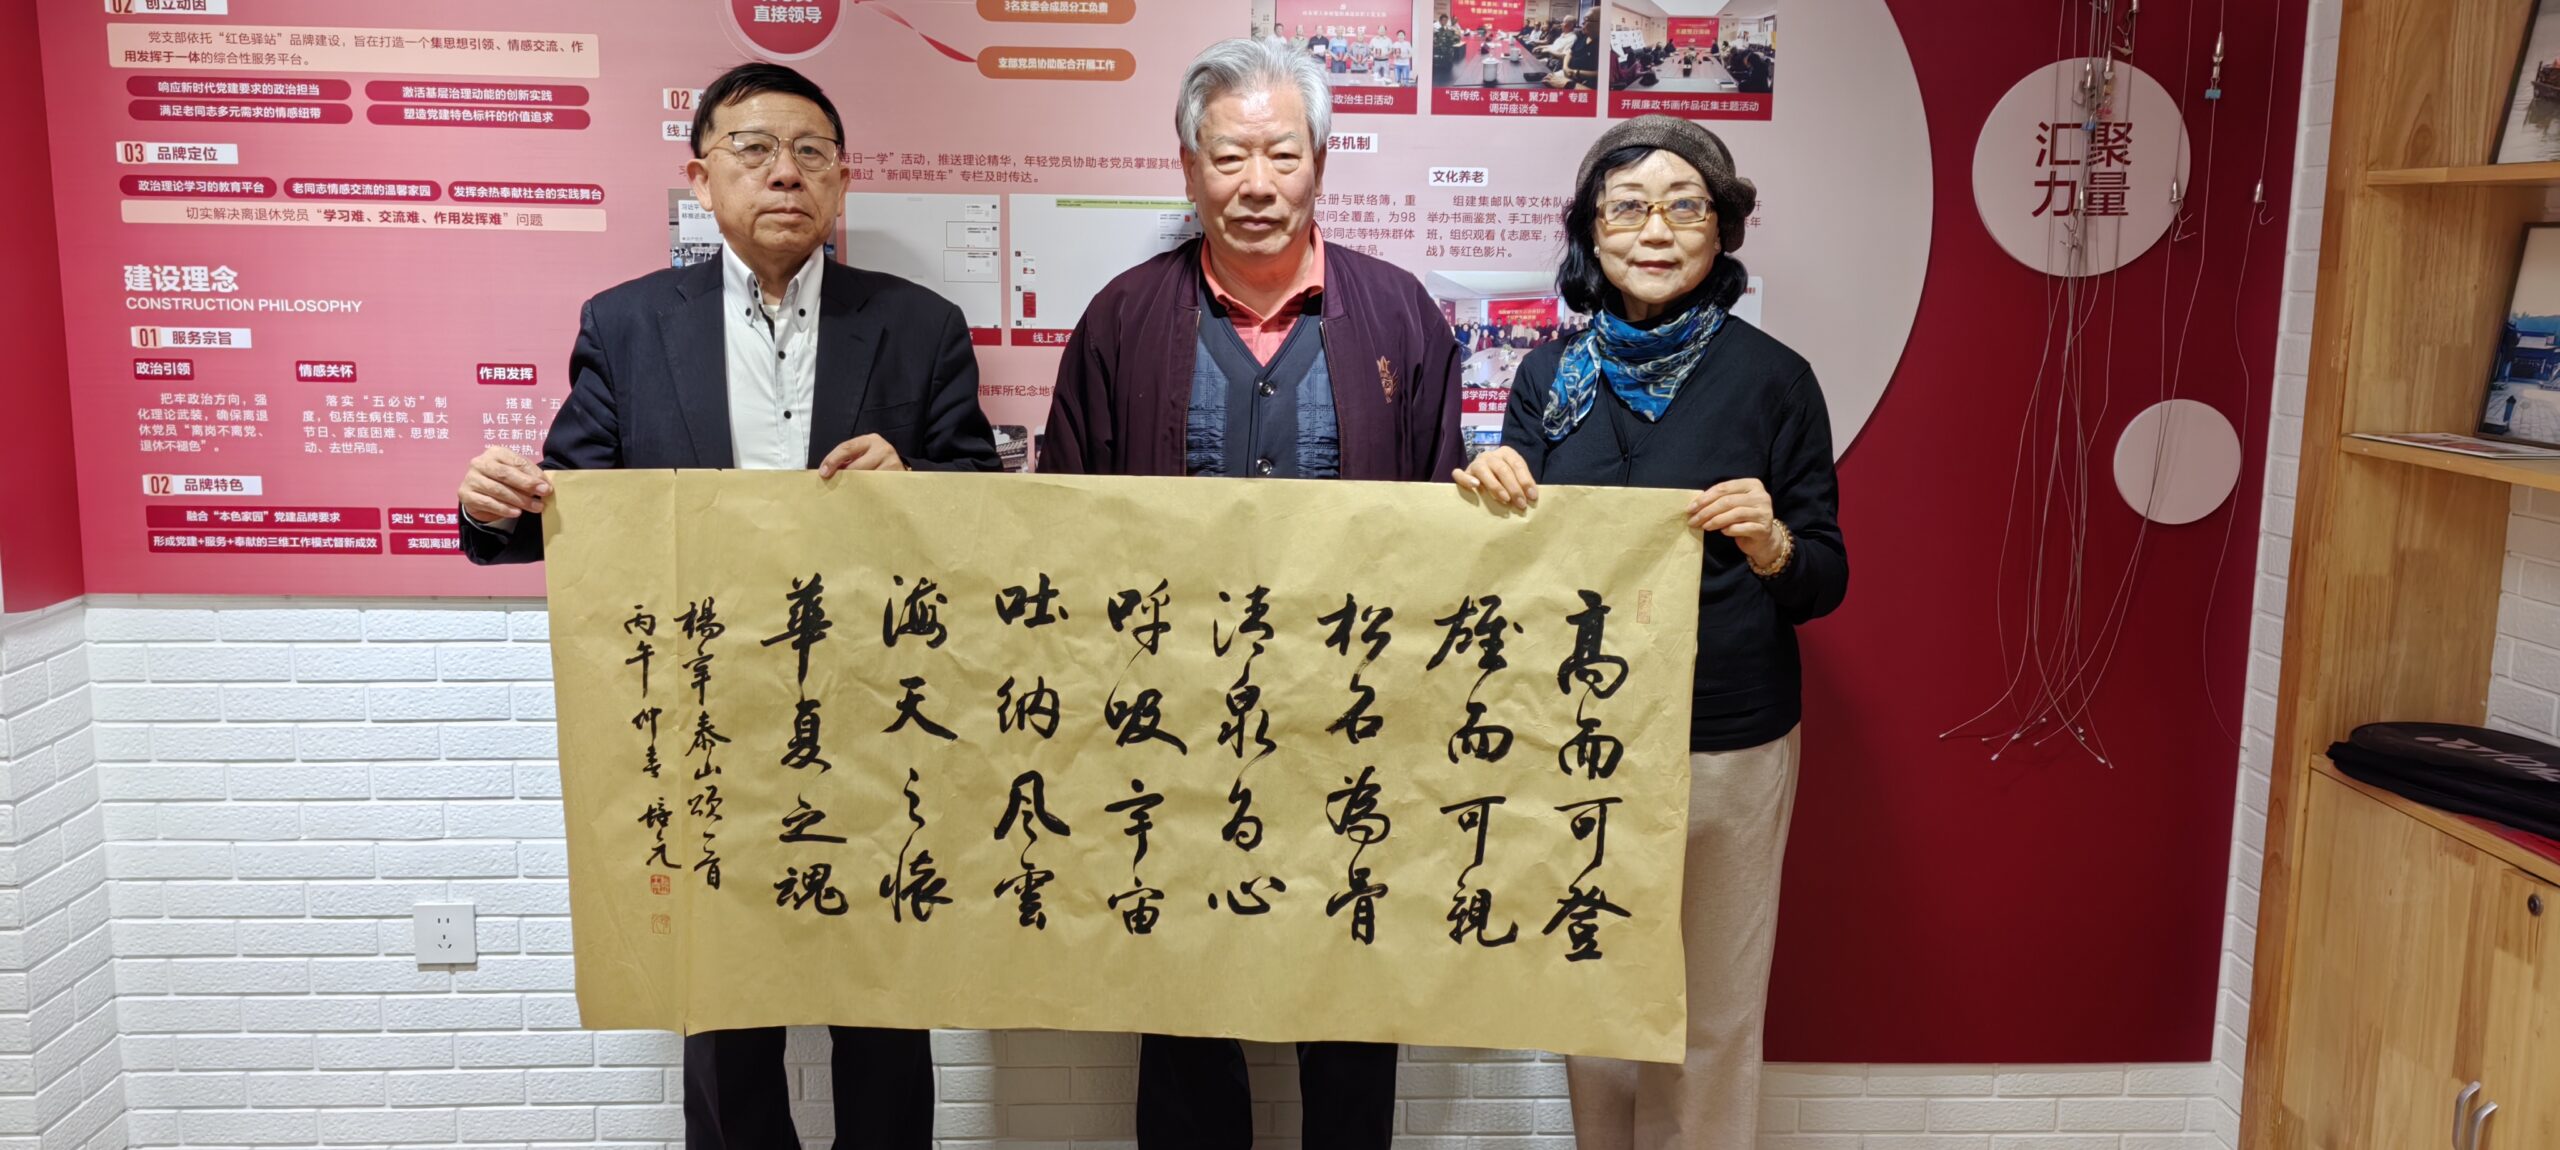 02 创立动因
党支部依托“红色驿站”品牌建设，旨在打造一个集思想引领、情感交流、作
用发挥于一体的综合性服务平台。
响应新时代党建要求的政治担当
激活基层治理动能的创新实践
满足老同志多元需求的情感纽带
塑造党建特色标杆的价值追求
03 品牌定位
政治理论学习的教育平台
老同志情感交流的温馨家园
发挥余热奉献社会的实践舞台
切实解决离退休党员“学习难、交流难、作用发挥难”问题
建设理念
CONSTRUCTION PHILOSOPHY
01 服务宗旨
政治引领
把牢政治方向，强
化理论武装，确保离退
休党员“离岗不离党、
退休不褪色”。
情感关怀
落实“五必访”制
度，包括生病住院、重大
节日、家庭困难、思想波
动、去世吊唁。
作用发挥
搭建“五
队伍平台，
志在新时代
发热。
02 品牌特色
融合“本色家园”党建品牌要求
突出“红色基
形成党建+服务+奉献的三维工作模式督新成效
实现离退休
直接领导
3名支委会成员分工负责
支部党员协助配合开展工作
02
线上
每日一学”活动，推送理论精华，年轻党员协助老党员掌握其他
通过“新闻早班车”专栏及时传达。
线上革命
指挥所纪念地
政治生日活动
“话传统、谈复兴、聚力量”专题
调研座谈会
开展廉政书画作品征集主题活动
务机制
名册与联络簿，重
慰问全覆盖，为98
珍同志等特殊群体
专员。
文化养老
组建集邮队等文体队伍
举办书画鉴赏、手工制作等
班，组织观看《志愿军：存
战》等红色影片。
邮学研究会
暨集邮
汇聚
力量
高而可登
雄而可親
松石為骨
清泉为心
呼吸宇宙
吐纳风雲
海天之懷
華夏之魂
楊辛泰山颂一首
丙午仲春 培元